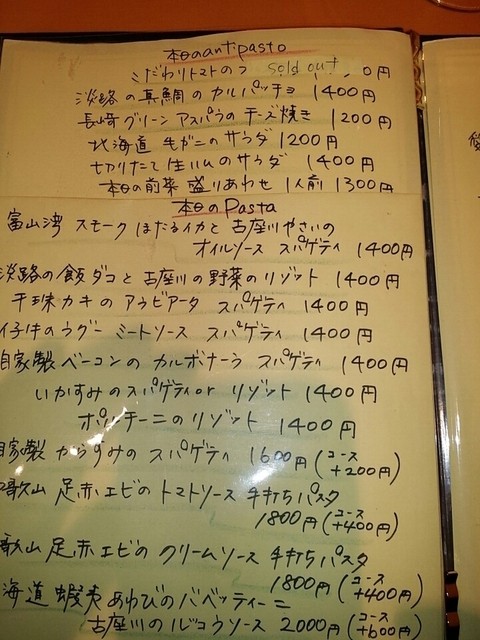 本日のantipasto
こだわりトマトのつ sold out 0円
淡路の真鯛のカルパッチョ 1400円
長崎グリーンアスパラのチーズ焼き 1200円
北海道 毛ガニのサラダ 1200円
切りたて生ハムのサラダ 1400円
本日の前菜 盛りあわせ 1人前 1300円
本日のPasta
富山湾 スモークほたるイカと古座川やさいの
オイルソース スパゲティ 1400円
淡路の飯ダコと古座川の野菜のリゾット 1400円
干珠カキのアラビアータ スパゲティ 1400円
仔牛のラグー ミートソース スパゲティ 1400円
自家製ベーコンのカルボナーラ スパゲティ 1400円
いかすみのスパゲティor リゾット 1400円
ポルチーニのリゾット 1400円
自家製 からすみの スパゲティ 1600円(コース+200円)
歌山 足赤エビのトマトソース 手打ちパスタ
1800円(コース+400円)
歌山 足赤エビの クリームソース 手打ちパスタ
1800円(コース+400円)
海道 蝦夷あわびのバベッティーニ
古座川のルッコラソース 2000円(コース+600円)